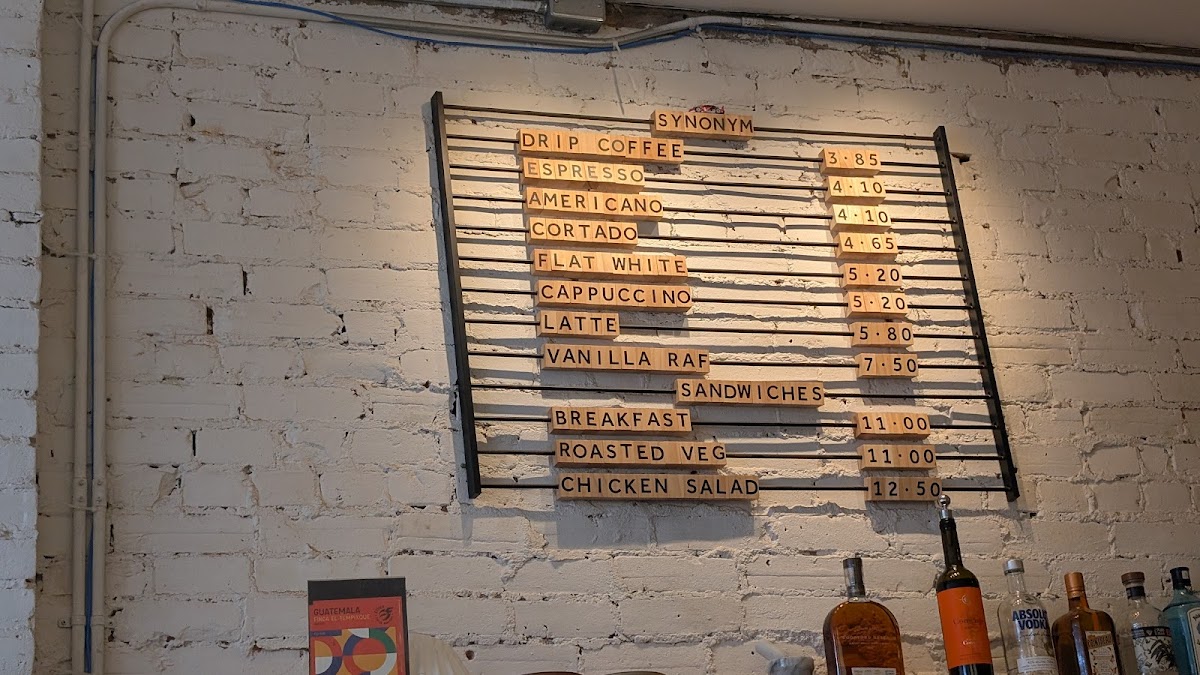 SYNONYM
DRIP COFFEE 3·85
ESPRESSO 4·10
AMERICANO 4·10
CORTADO 4·65
FLAT WHITE 5·20
CAPPUCCINO 5·20
LATTE 5·80
VANILLA RAF 7·50
SANDWICHES
BREAKFAST 11·00
ROASTED VEG 11·00
CHICKEN SALAD 12·50
GUATEMALA
ABSOLUT
VODKA